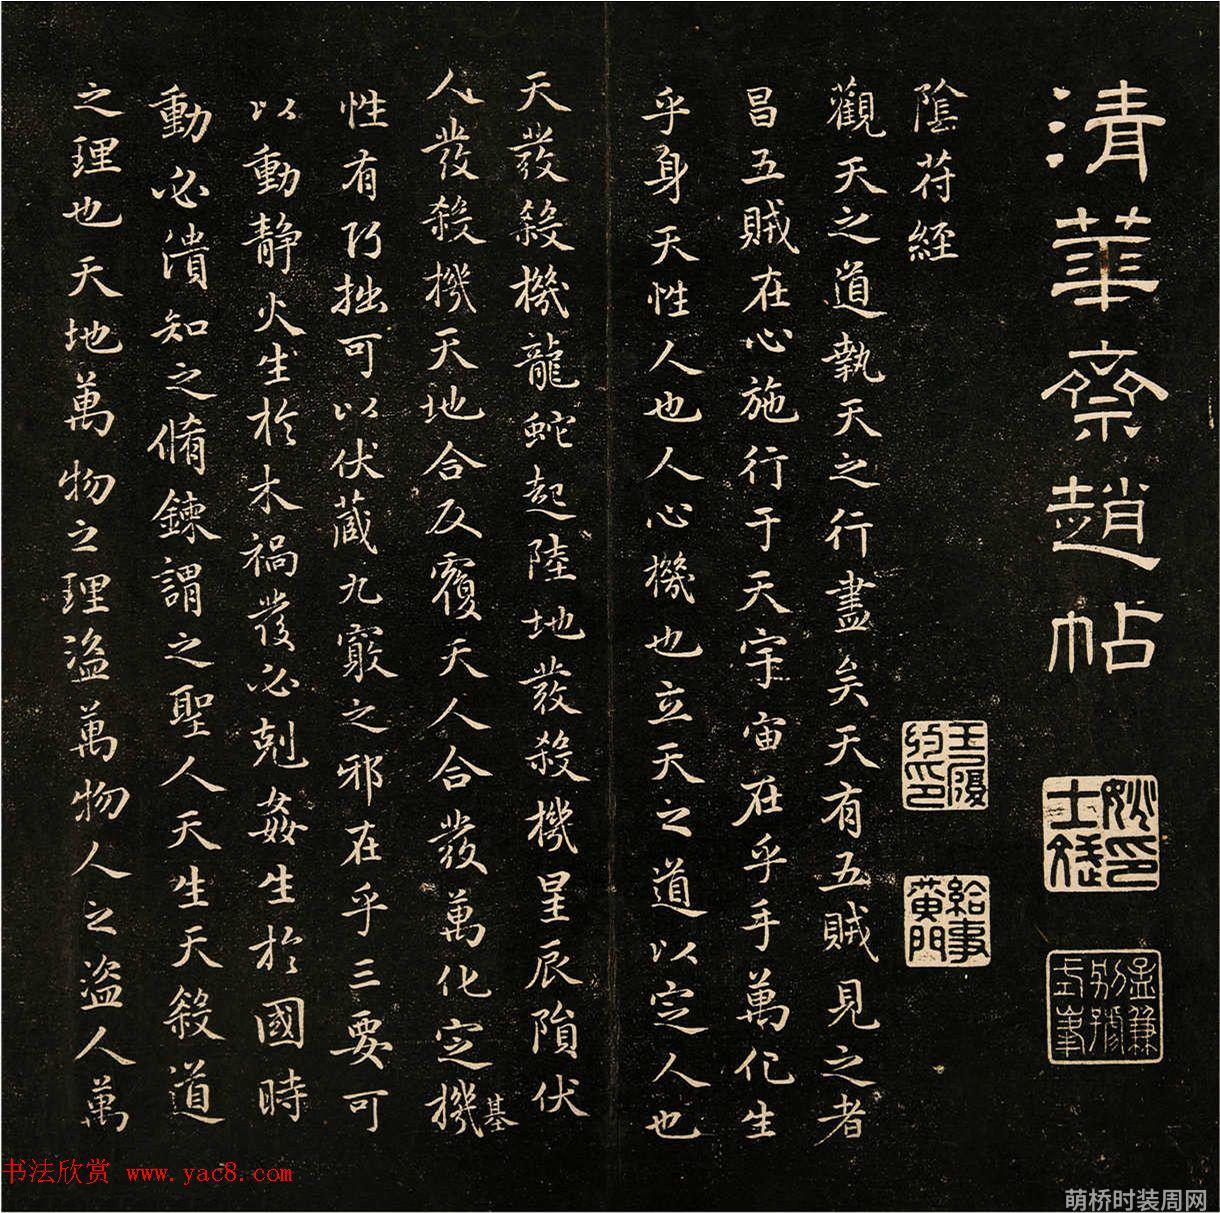 清華齋趙帖
陰符經
給事黃門
觀天之道執天之行盡矣天有五賊見之者
昌五賊在心施行于天宇宙在乎手萬化生
乎身天性人也人心機也立天之道以定人也
天發殺機龍蛇起陸地發殺機星辰隕伏
人發殺機天地合反覆天人合發萬化定機
基
性有巧拙可以伏藏九竅之邪在乎三要可
以動靜火生於木禍發必剋姦生於國時
動必潰知之脩鍊謂之聖人天生天殺道
之理也天地萬物之理盜萬物人之盜人萬
书法欣赏 www.yac8.com
萌桥时装周网